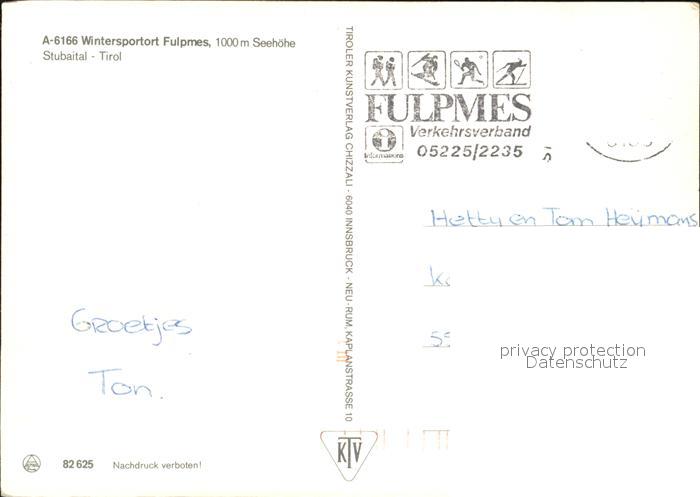 A-6166 Wintersportort Fulpmes, 1000 m Seehöhe
Stubaital - Tirol
TIROLER KUNSTVERLAG CHIZZALI - 6040 INNSBRUCK - NEU-RUM, KAPLANSTRASSE 10
FULPMES
Verkehrsverband
Informations
05225/2235
Hetty en Tom Heijmans
Groetjes
Ton.
privacy protection
Datenschutz
KTV
82 625 Nachdruck verboten!